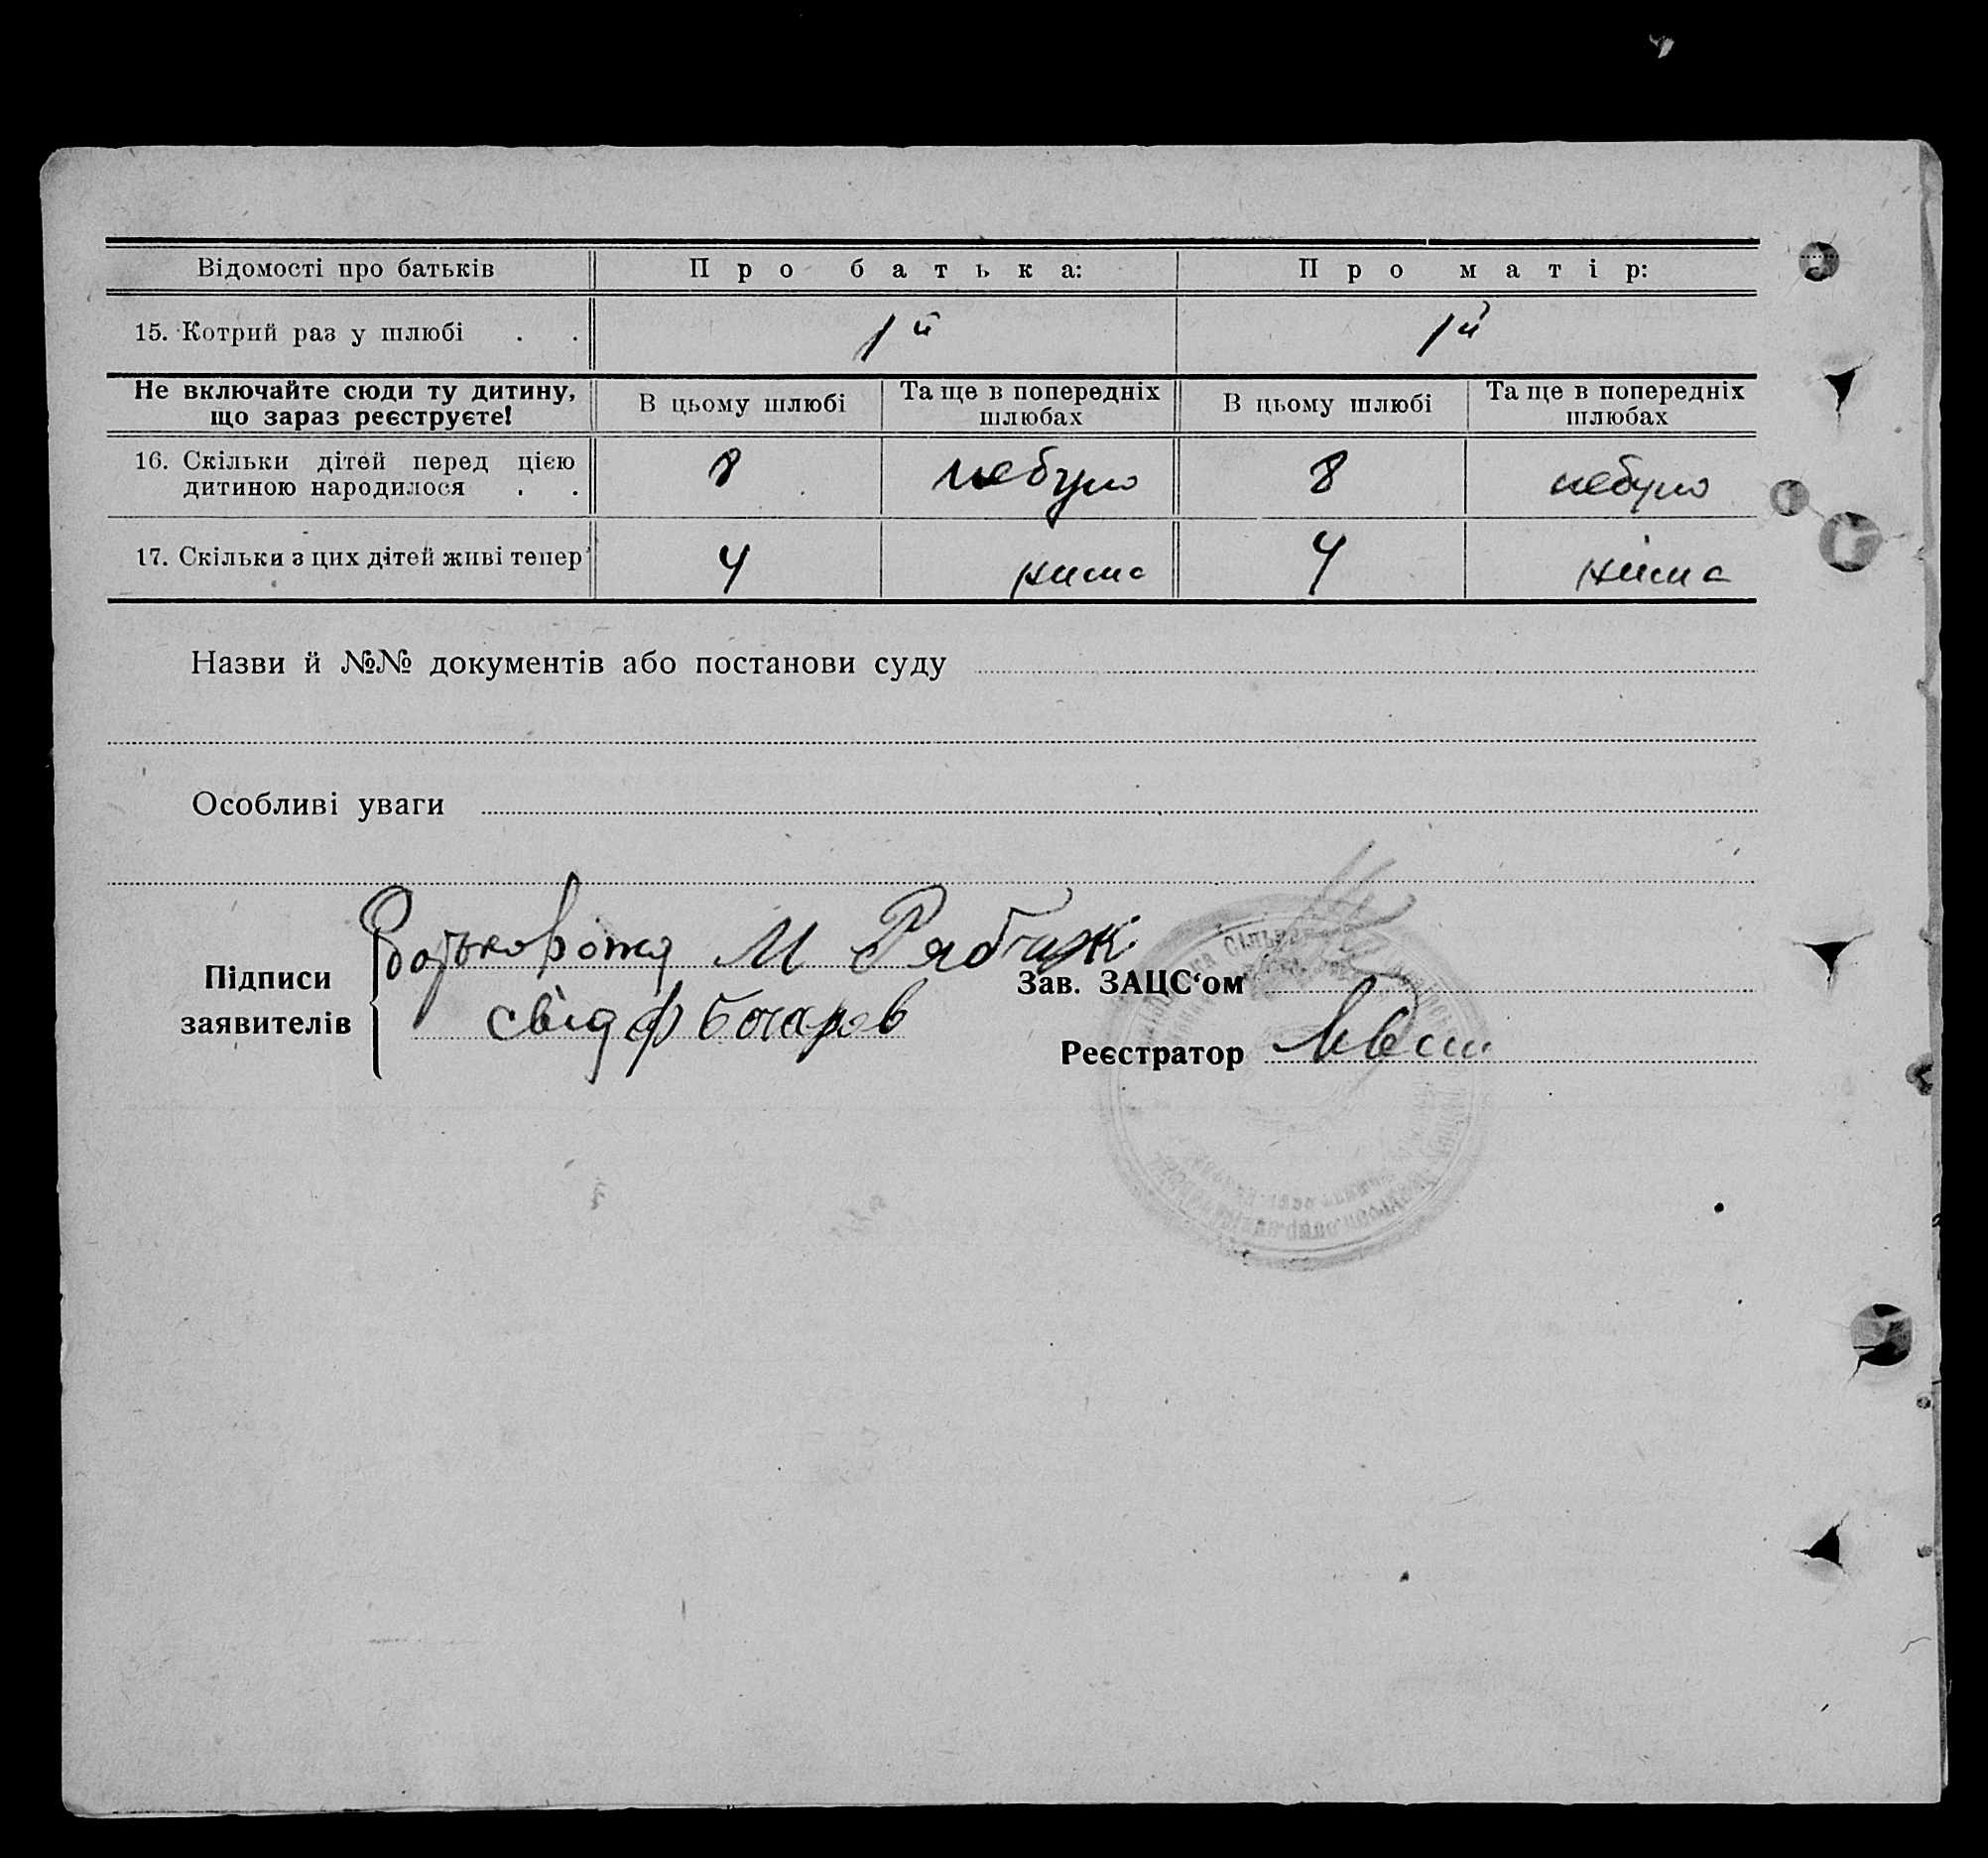 Відомості про батьків Про батька: Про матір:
15. Котрий раз у шлюбі . . 1й 1й
Не включайте сюди ту дитину, що зараз реєструєте! В цьому шлюбі Та ще в попередніх шлюбах В цьому шлюбі Та ще в попередніх шлюбах
16. Скільки дітей перед цією
дитиною народилося . . 8 небуло 8 небуло
17. Скільки з цих дітей живі тепер 4 нима 4 німа
Назви й №№ документів або постанови суду
Особливі уваги
Підписи заявителів
М Рябчик
свід Ф Бочаров
Зав. ЗАЦС‘ом
Реєстратор